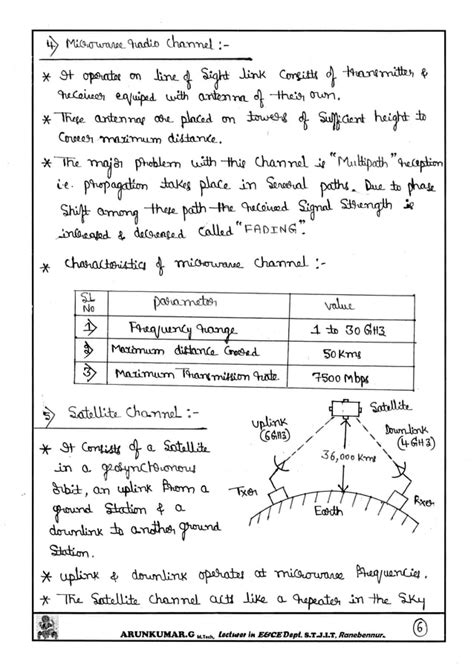 4) Microwave radio Channel :-
* It operates on line of Sight link Consists of transmitter &
receiver equiped with antenna of their own.
* These antennas are placed on towers of Sufficient height to
Cover maximum distance.
* The major problem with this Channel is "Multipath" reception
i.e. propagation takes place in Several paths. Due to phase
Shift among these path the received Signal Strength is
increased & decreased called "FADING".
* Characteristics of microwave Channel :-
SL No parameter value
1) Frequency range 1 to 30 GHz
2) Maximum distance Covered 50 Kms
3) Maximum Transmission rate 7500 Mbps
5) Satellite Channel :-
* It Consists of a Satellite
in a geosynchronous
orbit, an uplink from a
ground Station & a
downlink to another ground
Station.
Satellite
uplink
(6GHz)
Downlink
(4GHz)
36,000 Kms
Txer
Rxer
Earth
* uplink & downlink operates at microwave frequencies.
* The Satellite Channel acts like a repeater in the Sky
ARUNKUMAR.G M.Tech, Lecturer in E&CE Dept. S.T.J.I.T, Ranebennur.
6